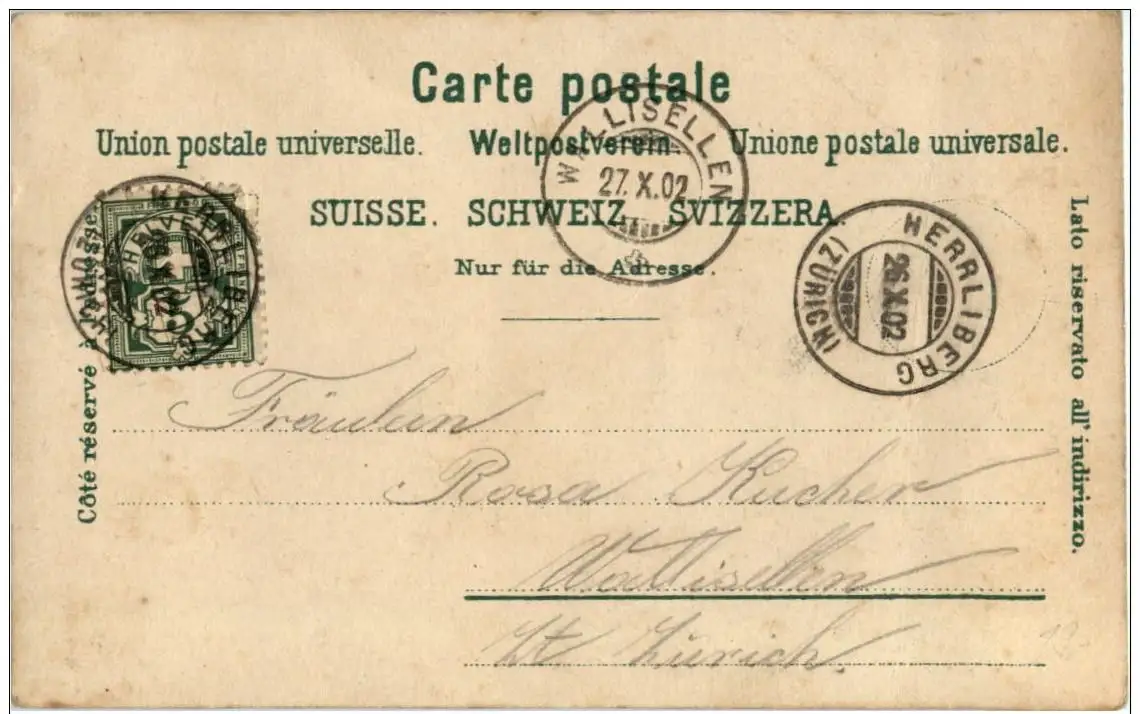 Carte postale
Union postale universelle. Weltpostverein. Unione postale universale.
SUISSE. SCHWEIZ. SVIZZERA.
Nur für die Adresse.
Côté réservé à l'adresse.
Lato riservato all' indirizzo.
WALLISELLEN
27.X.02
HERRLIBERG
(ZÜRICH)
26.X.02
HERRLIBERG
HELVETIA
5
Fräulein
Rosa Kucher
Wallisellen
Kt. Zürich